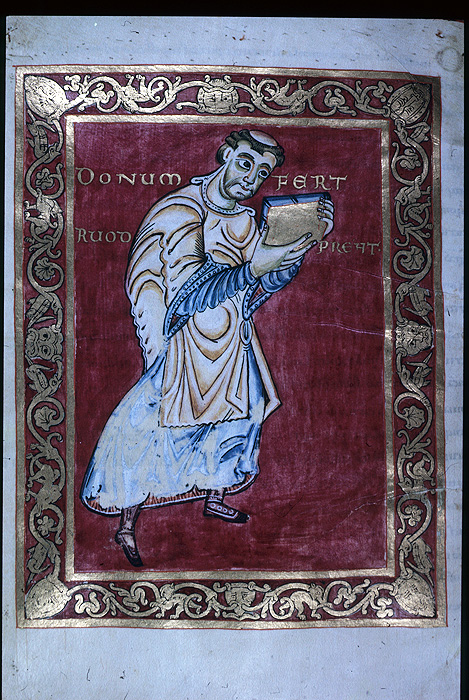 DONUM FERT
RUOD PREHT